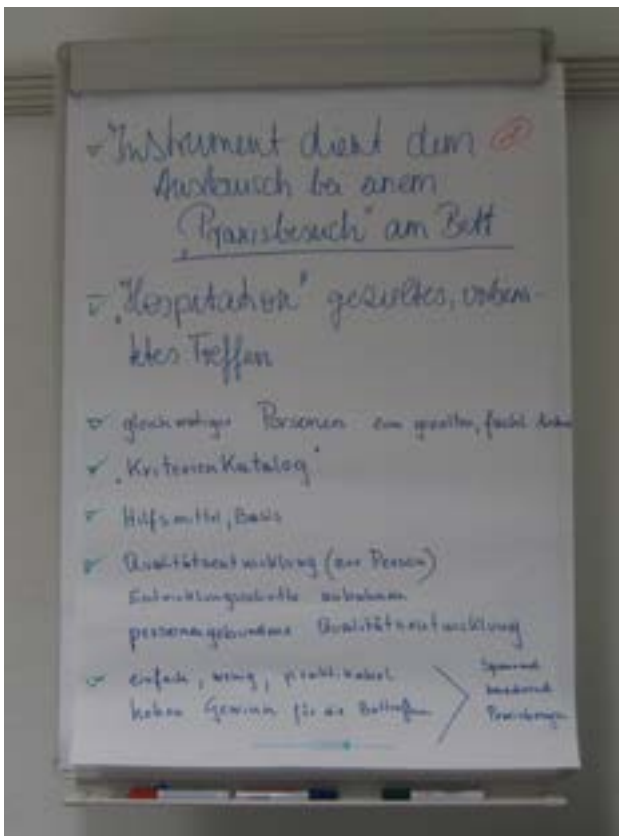 "Instrument dient dem
Austausch bei einem
"Praxisbesuch" am Bett
"Hospitation" gezieltes, vorberei-
tetes Treffen
gleichwertiger Personen zum gezielten, fachl.
"Kriterienkatalog"
Hilfsmittel, Basis
Qualitätsentwicklung (zur Person)
Entwicklungsschritte
personengebundene Qualitätsentwicklung
einfach, wenig, praktikabel
hoher Gewinn für die